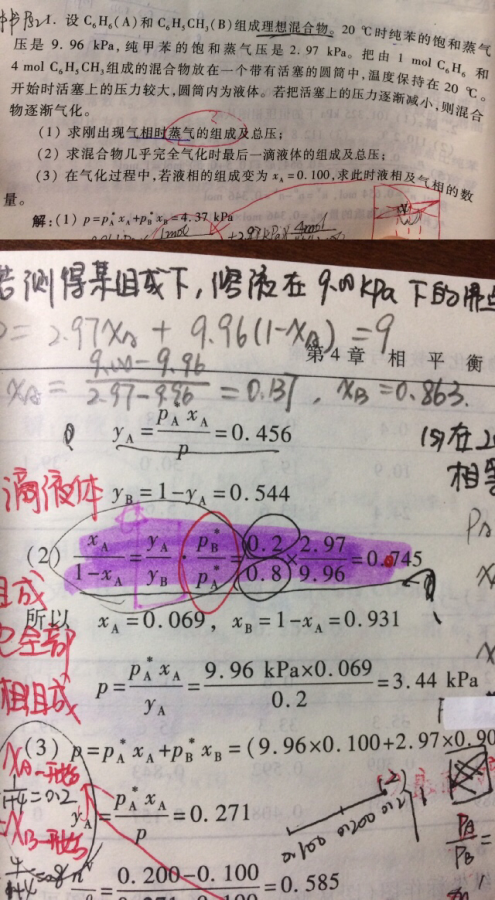 1. 设 C₆H₆(A)和 C₆H₅CH₃(B)组成理想混合物。20 ℃时纯苯的饱和蒸气
压是 9.96 kPa,纯甲苯的饱和蒸气压是 2.97 kPa。把由 1 mol C₆H₆ 和
4 mol C₆H₅CH₃组成的混合物放在一个带有活塞的圆筒中,温度保持在 20 ℃。
开始时活塞上的压力较大,圆筒内为液体。若把活塞上的压力逐渐减小,则混合
物逐渐气化。
(1) 求刚出现气相时蒸气的组成及总压;
(2) 求混合物几乎完全气化时最后一滴液体的组成及总压;
(3) 在气化过程中,若液相的组成变为 x_A=0.100,求此时液相及气相的数
量。
解:(1) p=p*_A x_A+p*_B x_B=4.37 kPa
若测得某组成下,溶液在 9.00kPa 下的沸点
= 2.97x_B + 9.96(1-x_B) = 9
第 4 章 相 平 衡
x_B = (9.00-9.96)/(2.97-9.96) = 0.137, x_B=0.863.
y_A = p_A x_A/p = 0.456
滴液体 y_B=1-y_A=0.544
(2) x_A/(1-x_A) = y_A/y_B · p*_B/p*_A = 0.2/0.8 × 2.97/9.96 = 0.0745
组成
所以 x_A=0.069, x_B=1-x_A=0.931
全部
p = p*_A x_A/y_A = 9.96 kPa×0.069/0.2 = 3.44 kPa
相组成
(3) p=p*_A x_A+p*_B x_B=(9.96×0.100+2.97×0.90
x_A-开始
1/1+4=0.2
y_A = p*_A x_A/p = 0.271
x_B-开始
0.100 0.200 0.271
P_A/P_B =
= 0.200-0.100/0.271-0.100 = 0.585